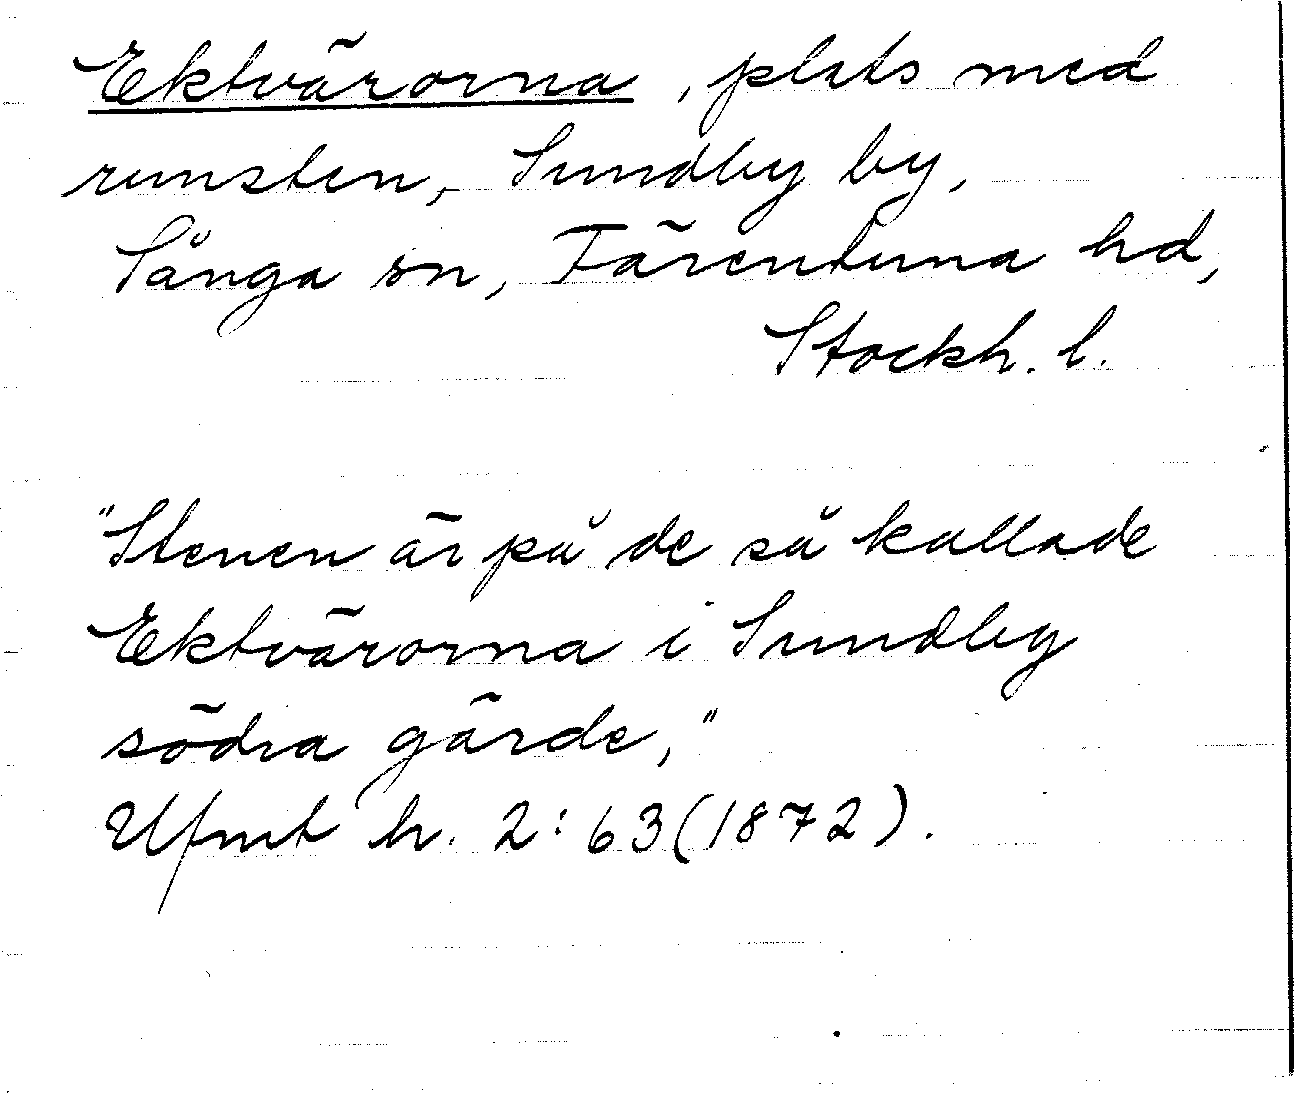 Ektvärorna, plats med
runsten, Sundby by,
Sånga sn, Färentuna hd,
Stockh. l.
"Stenen är på de så kallade
Ektvärorna i Sundby
södra gärde,"
Ufmt h. 2:63(1872).